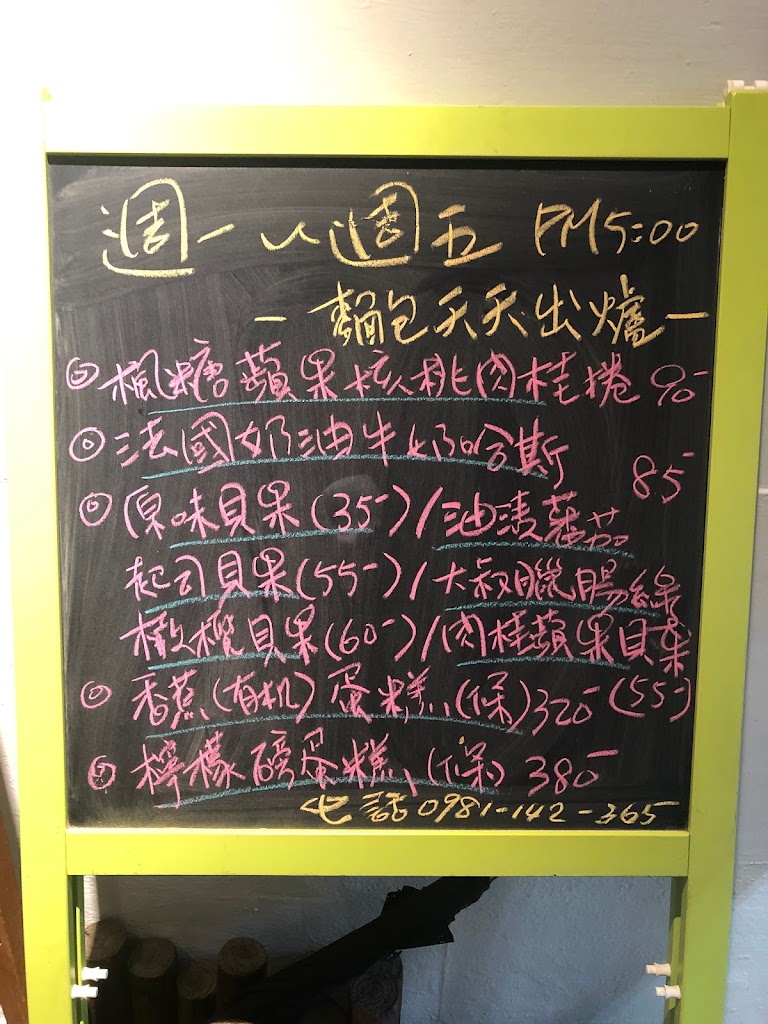 週一~週五 PM5:00
-麵包天天出爐-
楓糖蘋果核桃肉桂捲 90-
法國奶油牛奶哈斯 85-
原味貝果(35-)/油漬蕃茄
起司貝果(55-)/大叔臘腸綠
橄欖貝果(60-)/肉桂蘋果貝果
香蕉(有机)蛋糕(條)320- (55-)
檸檬磅蛋糕(條) 380-
電話 0981-142-365